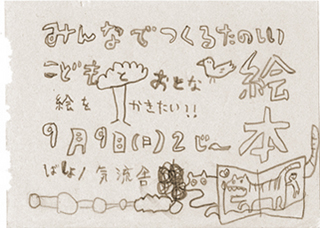 みんなでつくるたのしい
こどもと おとな
絵本
絵を かきたい?!
9月9日(日)2じ〜
ばしょ/気流舎